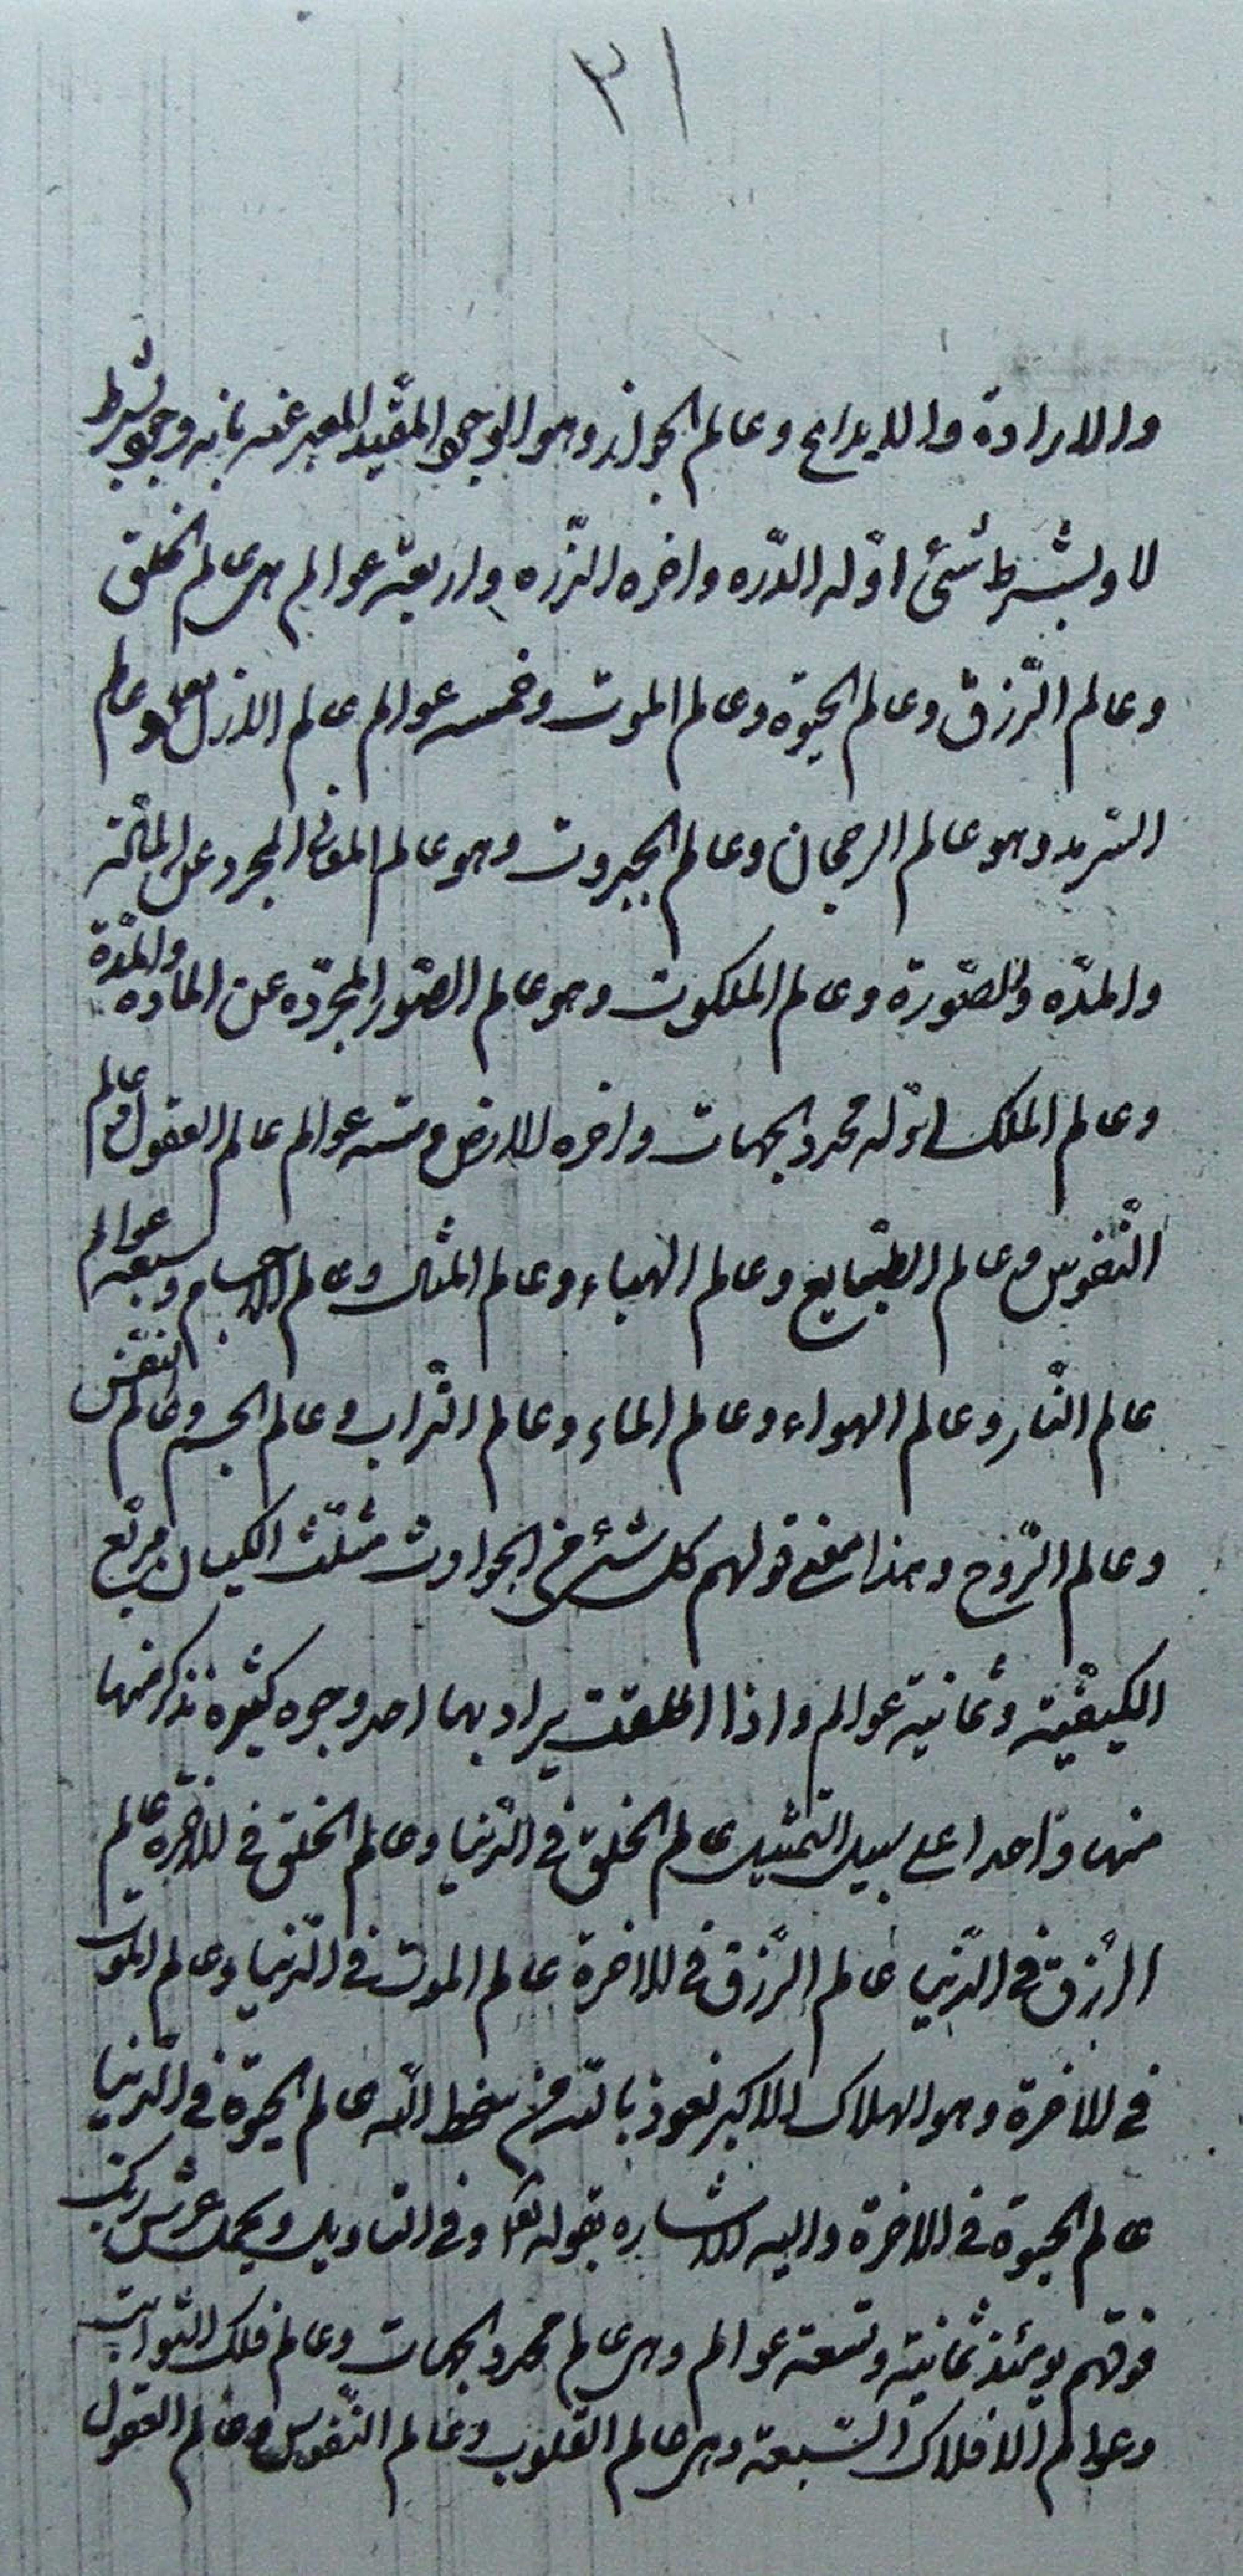 ٣١
والارادة والابداع وعالم الجواز وهو الوجود المقيد المعبر عنه بانه وجود بشرط
لا وبشرط شئ اوّله الدّره واخره الذّره واربعة عوالم هى عالم الخلق
وعالم الرّزق وعالم الحيوة وعالم الموت وخمسه عوالم عالم الازل تعالى وعالم
السّرمد وهو عالم الرجحان وعالم الجبروت وهو عالم المعانى المجرد عن المادّة
والمدّه والصّورة وعالم الملكوت وهو عالم الصّور المجرّده عن المادّه والمدّة
وعالم الملك اوّله محدد الجهات واخره الارض وستّه عوالم عالم العقول وعالم
النّفوس وعالم الطّبايع وعالم الهباء وعالم المثال وعالم الاجسام وسبعة عوالم
عالم النّار وعالم الهواء وعالم الماء وعالم التّراب وعالم الجسم وعالم النّفس
وعالم الرّوح وهذا معنى قولهم كل شئ من الحوادث مثلّث الكيان مربّع
الكيفيّة وثمانية عوالم واذا اطلقت يراد بها احد وجوه كثيره نذكر منها
منها واحدا على سبيل التّمثيل عالم الخلق فى الدّنيا وعالم الخلق فى الاخرة عالم
الرّزق فى الدّنيا عالم الرّزق فى الاخرة عالم الموت فى الدّنيا وعالم الموت
فى الاخرة وهو الهلاك الاكبر نعوذ بالله من سخط الله عالم الحيوة فى الدّنيا
عالم الحيوة فى الاخرة واليه الاشاره بقوله تعا وفى التاويل ويحمل عرش ربّك
فوقهم يومئذ ثمانية وتسعة عوالم وهى عالم محدد الجهات وعالم فلك الثّوابت
وعوالم الافلاك السّبعة وهى عالم القلوب وعالم النّفوس وعالم العقول